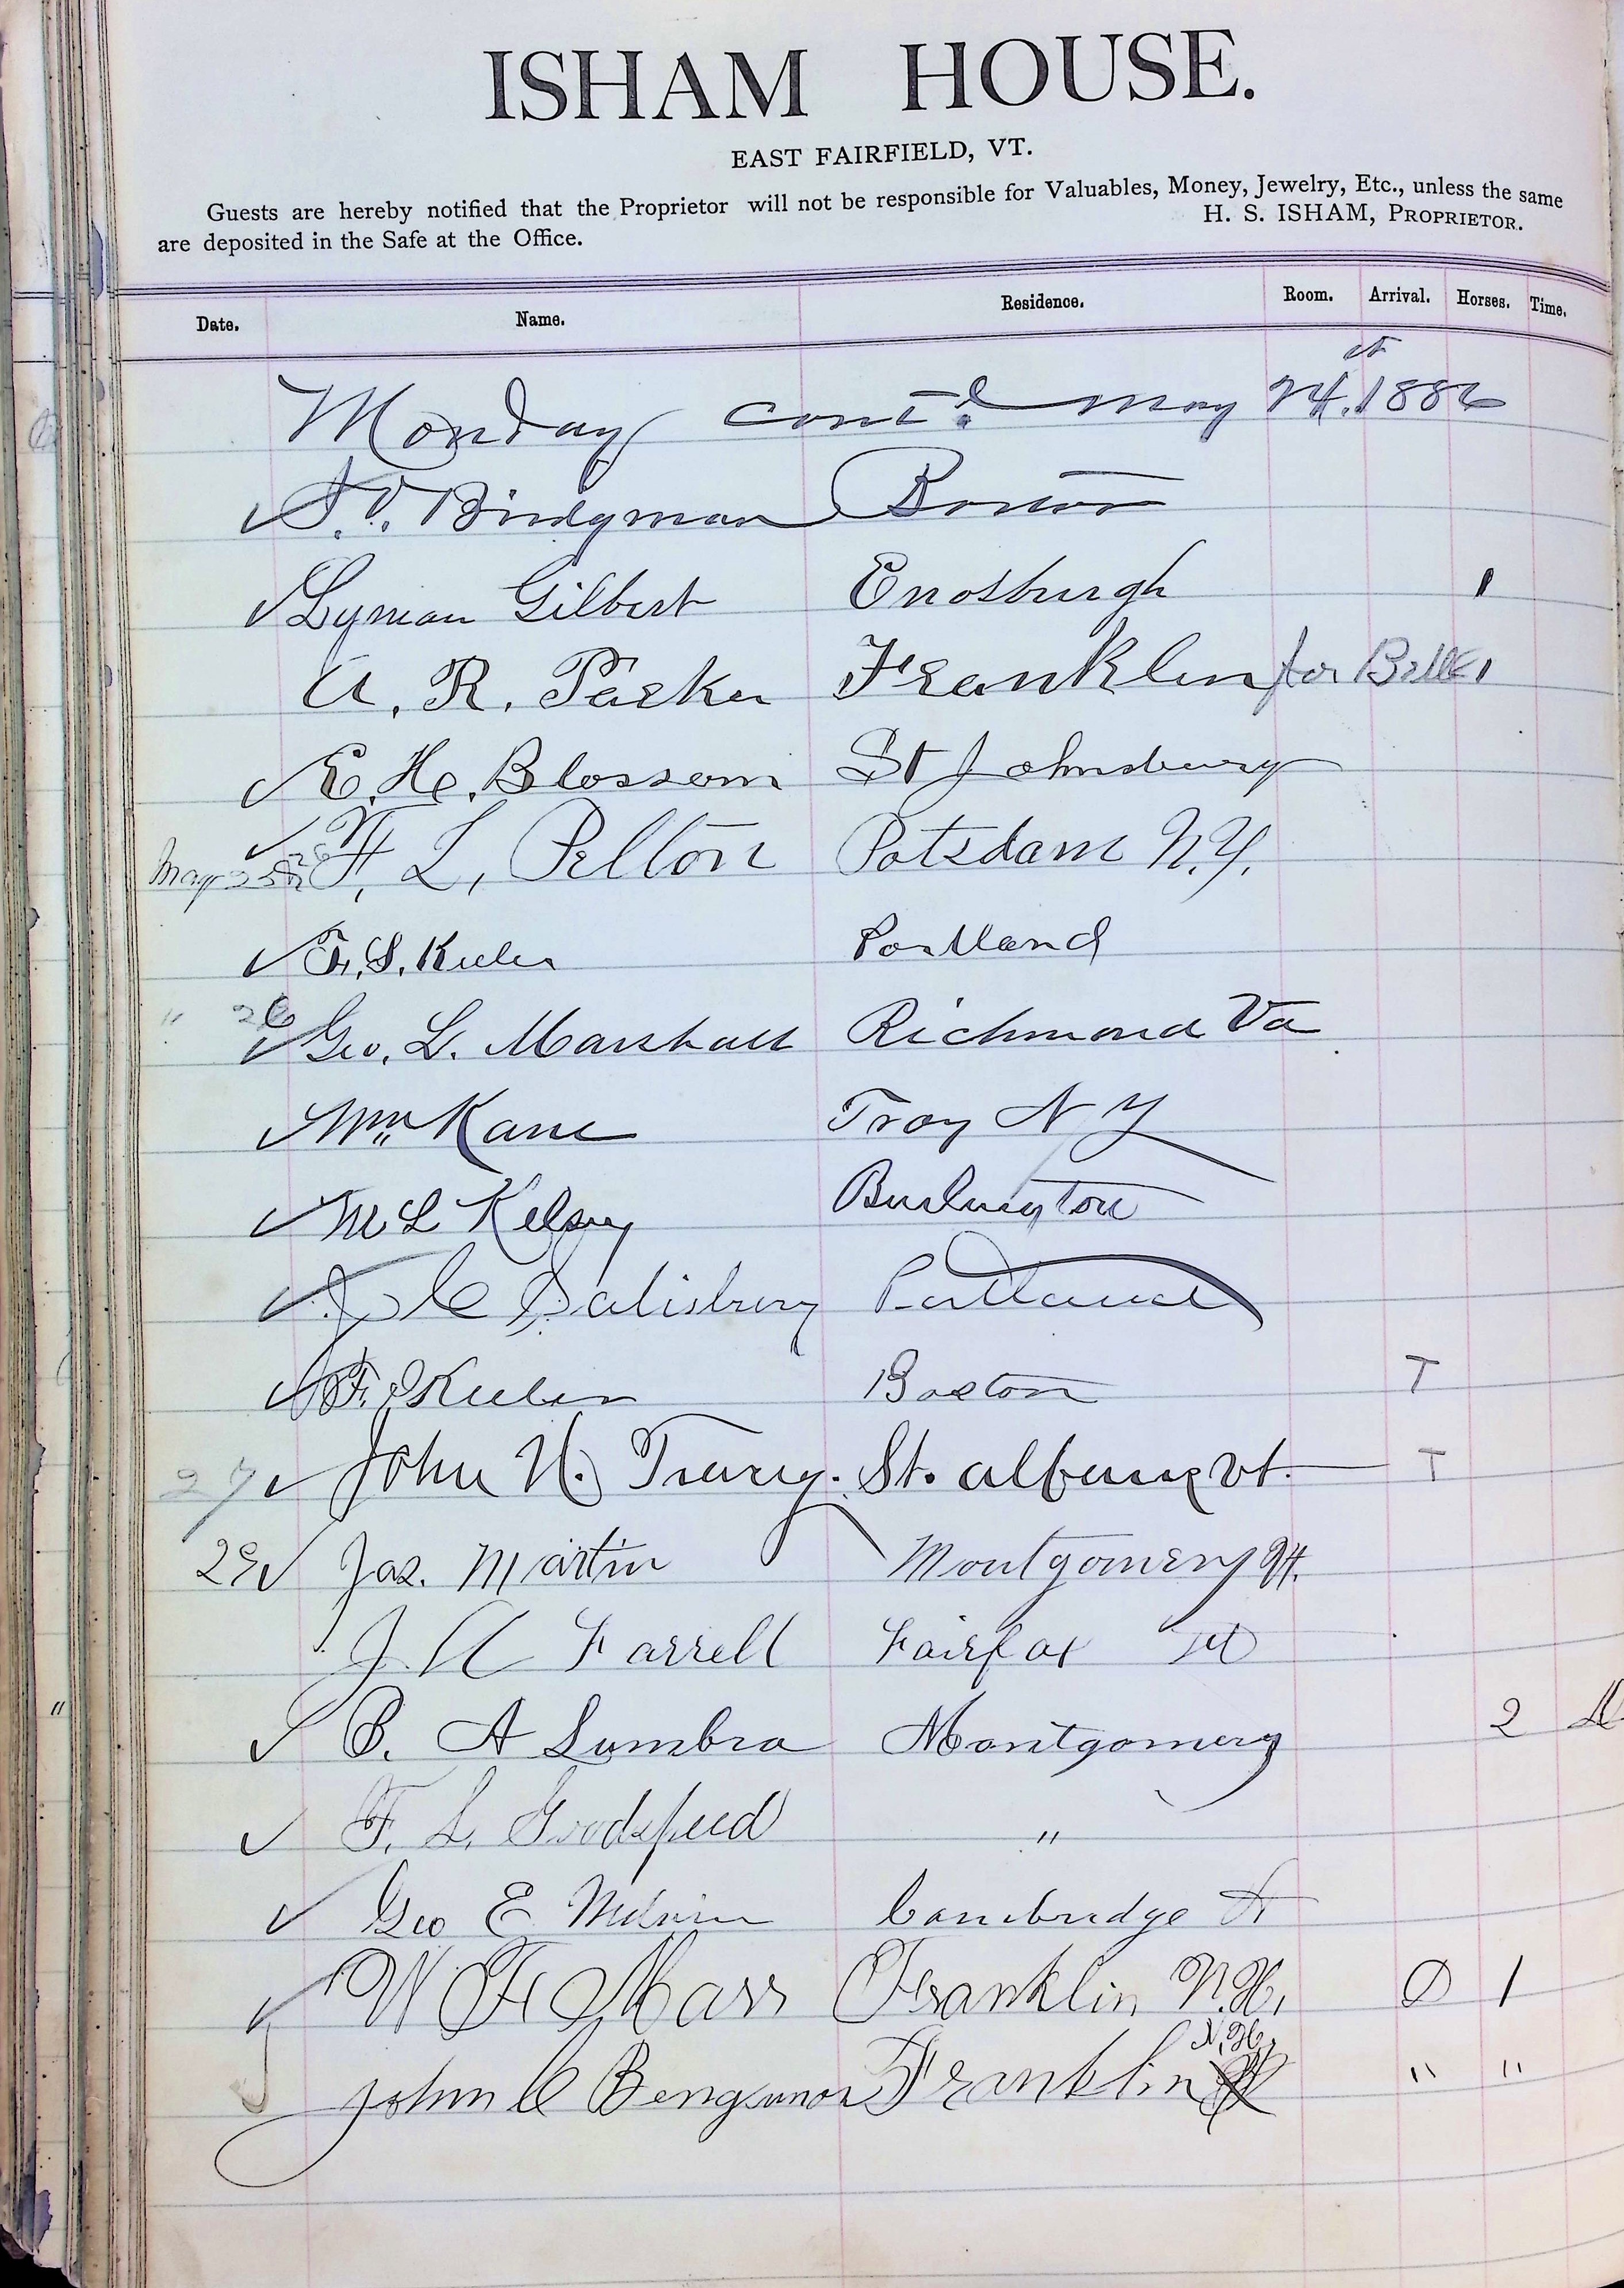 ISHAM HOUSE.
EAST FAIRFIELD, VT.
Guests are hereby notified that the Proprietor will not be responsible for Valuables, Money, Jewelry, Etc., unless the same
are deposited in the Safe at the Office.
H. S. ISHAM, PROPRIETOR.
Date. Name. Residence. Room. Arrival. Horses. Time.
Monday cont'd May 24. 1886
Bridgman Boston
Lyman Gilbert Enosburgh 1
A. R. Parker Franklin for 1
E. H. Blossom St Johnsbury
May 25 F. L. Pelton Potsdam N.Y.
F. S. Keeler Portland
" 26 Geo. L. Marshall Richmond Va
Wm Kane Troy N Y
M L Kelsey Burlington
J C Salisbury Portland
F. S Keeler Boston T
27 John H. St. Albans Vt. T
29 Jas. Martin Montgomery Vt.
J. A Farrell Fairfax Vt
B. A Lumbra Montgomery 2
F. L. Goodspeed "
Geo E Melvin Cambridge Vt
W F Marr Franklin N.H. 1
N.H.
John C Franklin " "